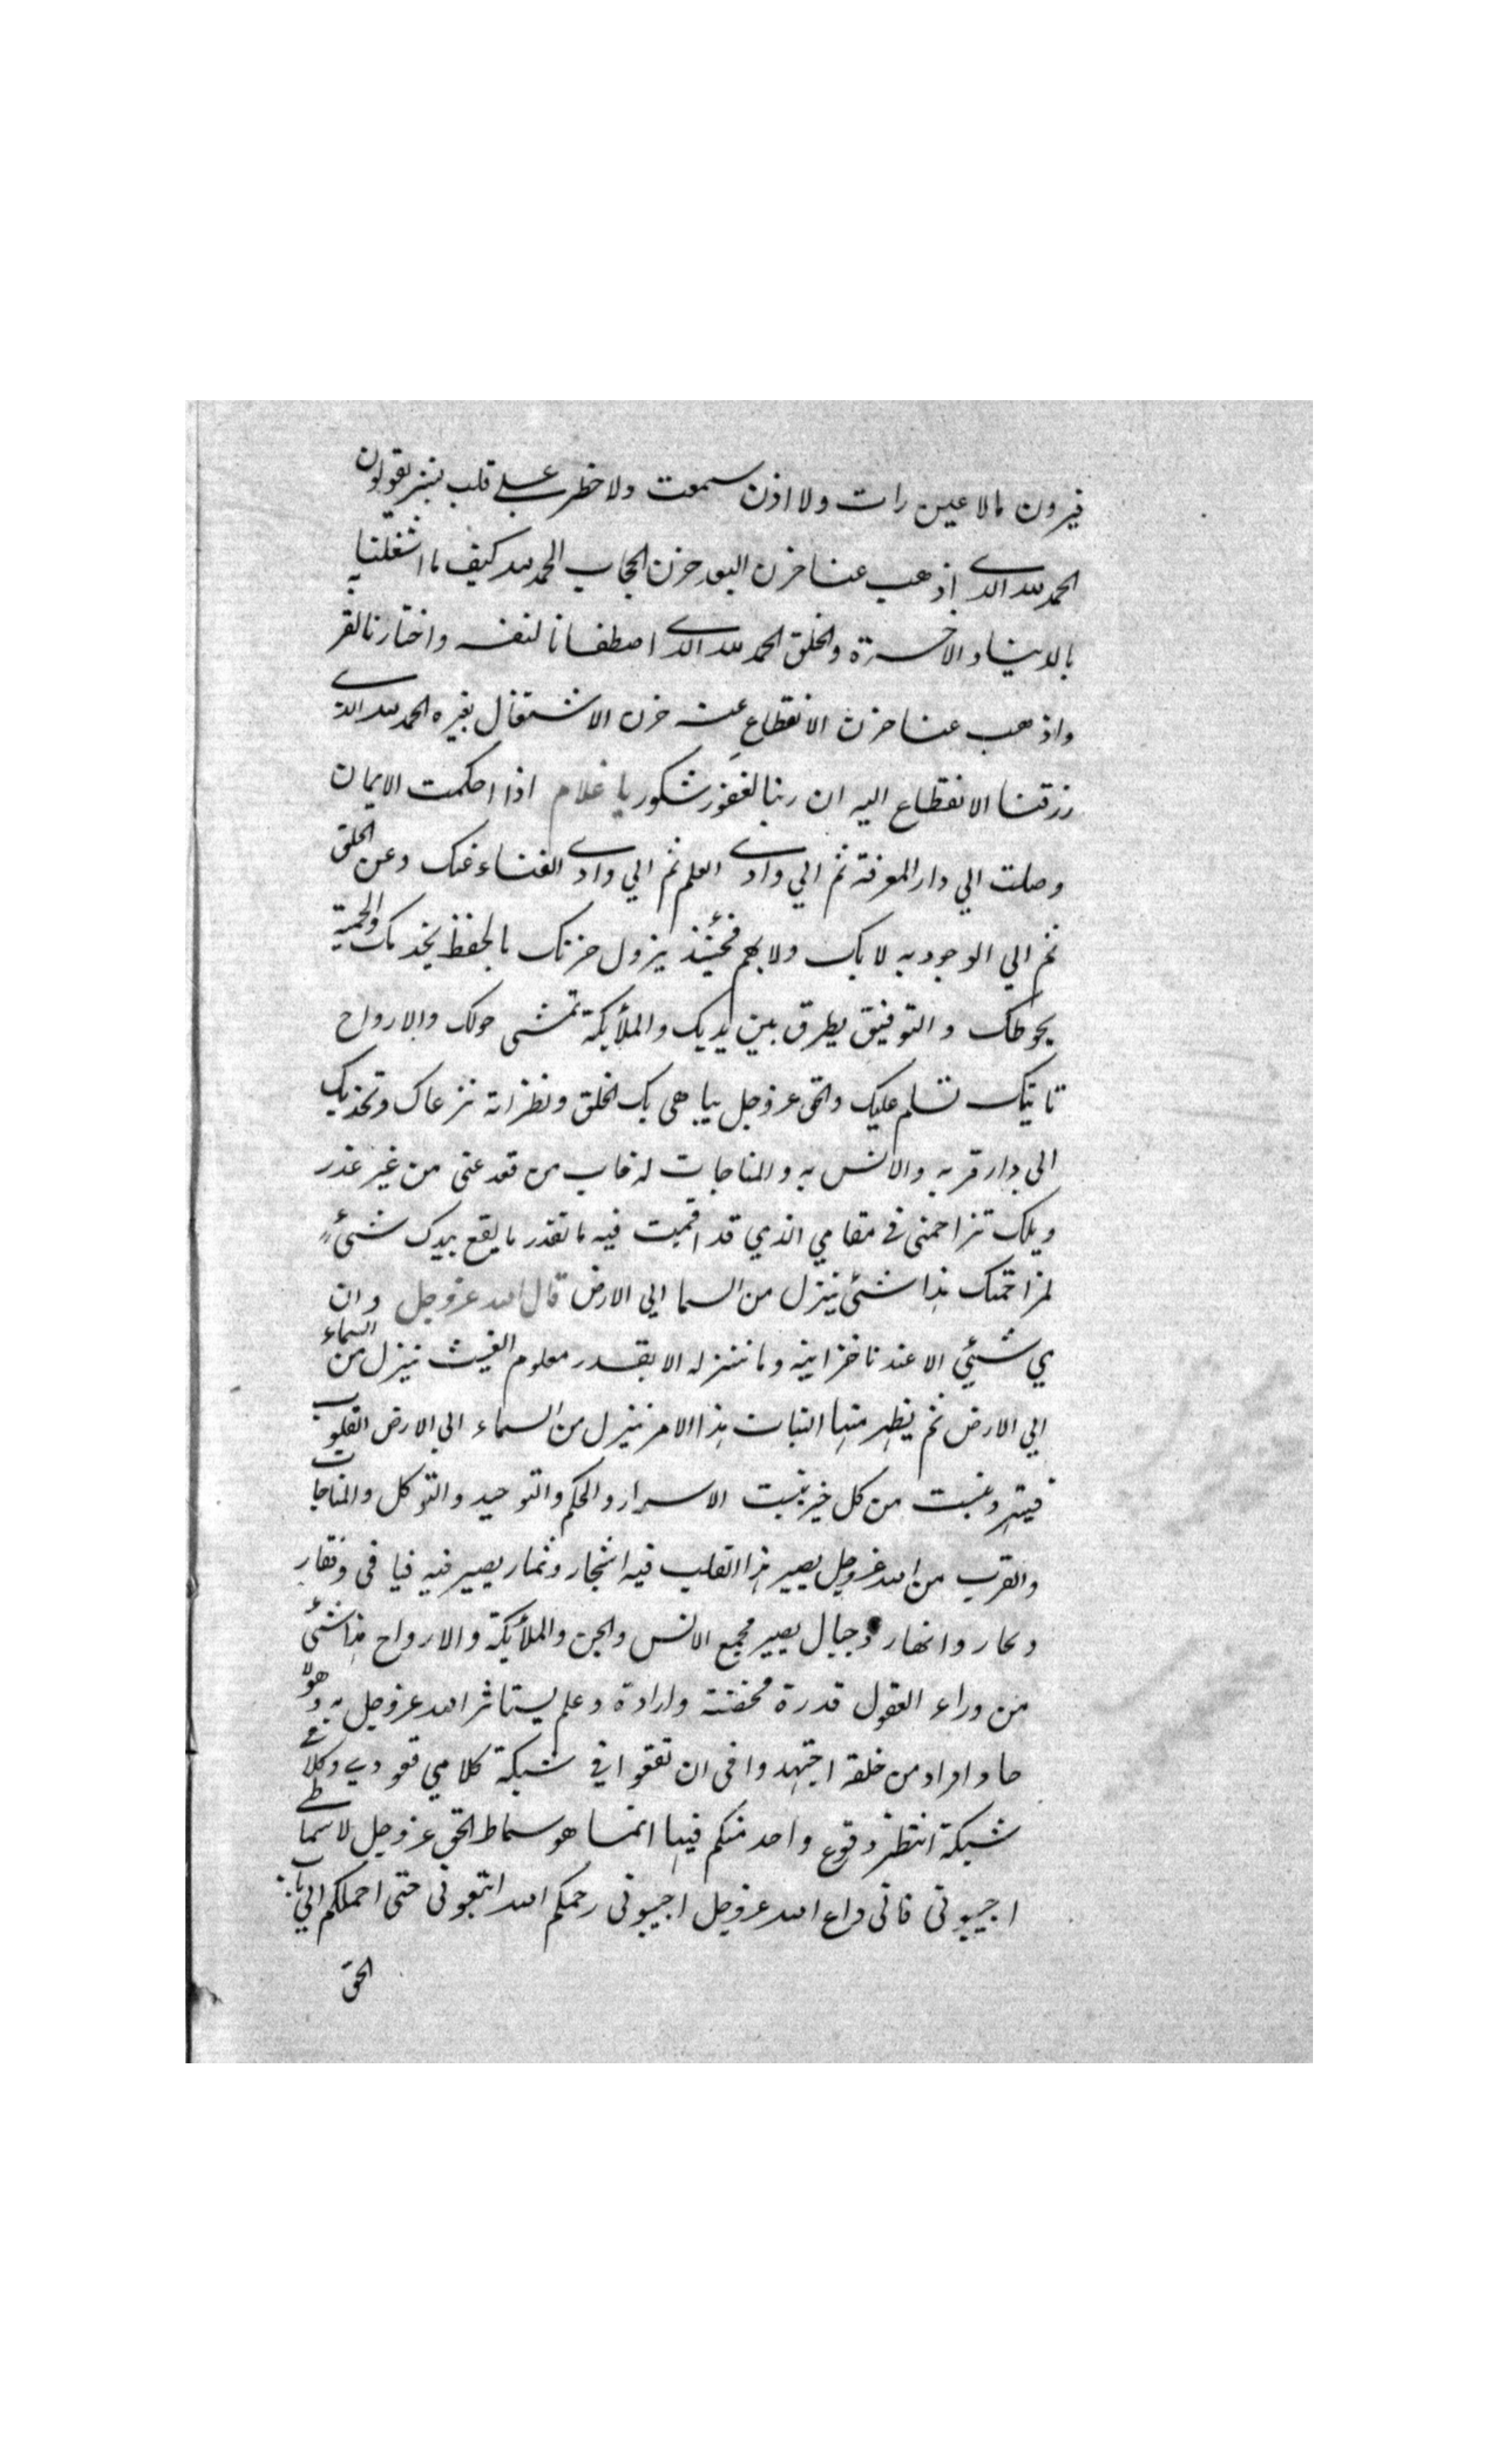 فيرون مالا عين رات ولا اذن سمعت ولا خطر علي قلب بشر يقولون
الحمد لله الذي اذهب عنا حزن البعد حزن الحجاب الحمد لله كيف ما اشغلنا
بالدينا والاخرة والخلق الحمد لله الذي اصطفانا لنفسه واختارنا لقر
واذهب عنا حزن الانقطاع عنه حزن الاشتغال بغيره الحمد لله الذي
رزقنا الانقطاع اليه ان ربنا لغفور شكور يا غلام اذا احكمت الايمان
وصلت الي دار المعرفة ثم الي وادي العلم ثم الي وادي الفناء عنك وعن الخلق
ثم الي الوجود به لا بك ولا بهم فحينئذ يزول حزنك بالحفظ يخدمك والحمية
يحوطك والتوفيق يطرق بين يديك والملائكة تمشي حولك والارواح
تاتيك تسلم عليك والحق عز وجل يباهي بك الخلق ونظراته ترعاك وتجذبك
الي دار قربه والانس به والمناجات له خاب من قعد عني من غير عذر
ويلك تزاحمني في مقامي الذي قد اقمت فيه ما تقدر ما يقع بيدك شئ
لمزاحمتك هذا شئ ينزل من السما الي الارض قال الله عز وجل وان
من شئي الا عندنا خزاينه وما ننزله الا بقدر معلوم الغيث ينزل من السماء
الي الارض ثم يظهر منها النبات هذا الامر ينزل من السماء الي الارض القلوب
فيهتز وينبت من كل خير ينبت الاسرار والحكم والتوحيد والتوكل والمناجات
والقرب من الله عز وجل يصير هذا القلب فيه اشجار وثمار يصير فيه فيافي وقفار
وبحار وانهار وجبال يصير مجمع الانس والجن والملائكة والارواح هذا شئي
من وراء العقول قدرة محضة وارادة وعلم يستاثر الله عز وجل به وهو لا
حاد افراد من خلقه اجتهدوا في ان تقعوا في شبكة كلامي قعودي وكلامي
شبكة انتظر وقوع واحد منكم فيها انما هو سماط الحق عز وجل لا سماطي
اجيبوني فاني داع الله عز وجل اجيبوني رحمكم الله اتبعوني حتى احملكم الي باب
الحق